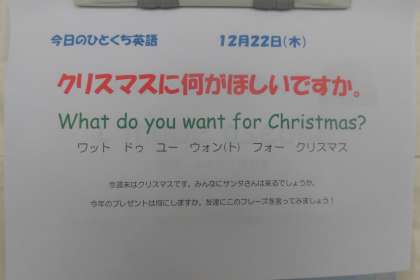 今日のひとくち英語　12月22日(木)
クリスマスに何がほしいですか。
What do you want for Christmas?
ワット　ドゥ　ユー　ウォン(ト)　フォー　クリスマス
今週末はクリスマスです。みんなにサンタさんは来るでしょうか。
今年のプレゼントは何にしますか。友達にこのフレーズを言ってみましょう！